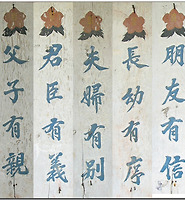 父子有親
君臣有義
夫婦有别
長幼有序
朋友有信